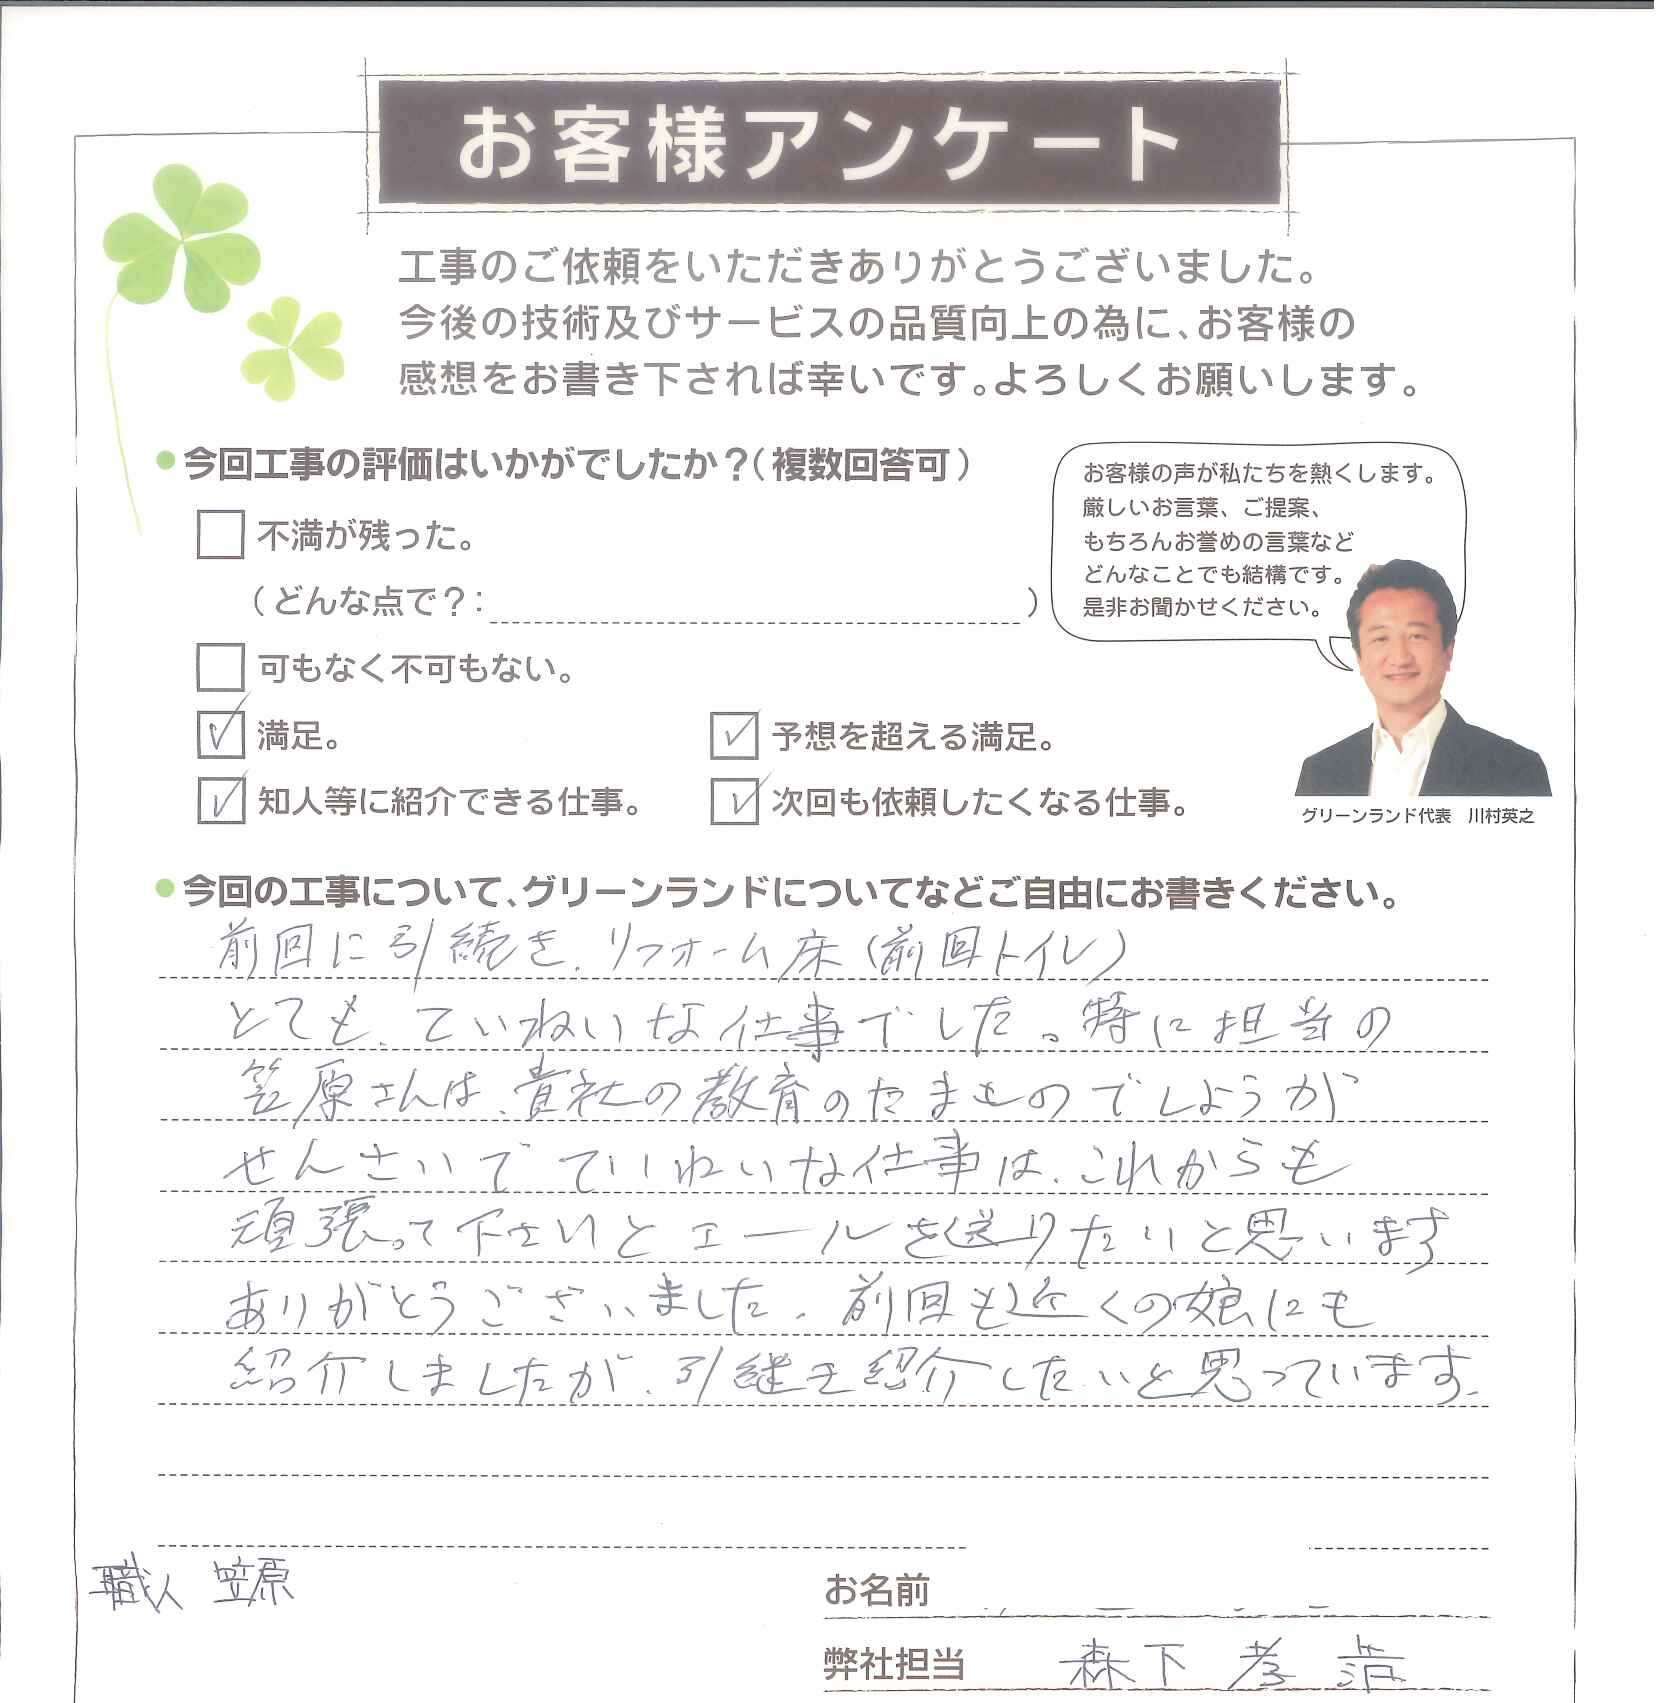 お客様アンケート
工事のご依頼をいただきありがとうございました。
今後の技術及びサービスの品質向上の為に、お客様の
感想をお書き下されば幸いです。よろしくお願いします。
今回工事の評価はいかがでしたか？（複数回答可）
不満が残った。
（どんな点で？：　）
可もなく不可もない。
満足。
予想を超える満足。
知人等に紹介できる仕事。
次回も依頼したくなる仕事。
お客様の声が私たちを熱くします。
厳しいお言葉、ご提案、
もちろんお誉めの言葉など
どんなことでも結構です。
是非お聞かせください。
グリーンランド代表　川村英之
今回の工事について、グリーンランドについてなどご自由にお書きください。
前回に引続き、リフォーム床（前回トイレ）
とても、ていねいな仕事でした。特に担当の
笠原さんは、貴社の教育のたまものでしようが
せんさいで ていねいな仕事は、これからも
頑張って下さいとエールを送りたいと思います
ありがとうございました。前回も近くの娘にも
紹介しましたが、引継き紹介したいと思っています。
職人 笠原
お名前
弊社担当 森下 孝